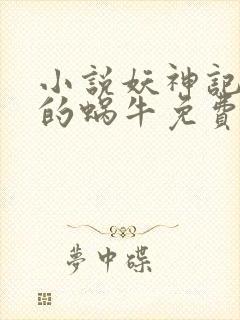 小説妖神記
的蝸牛免費
夢中碟